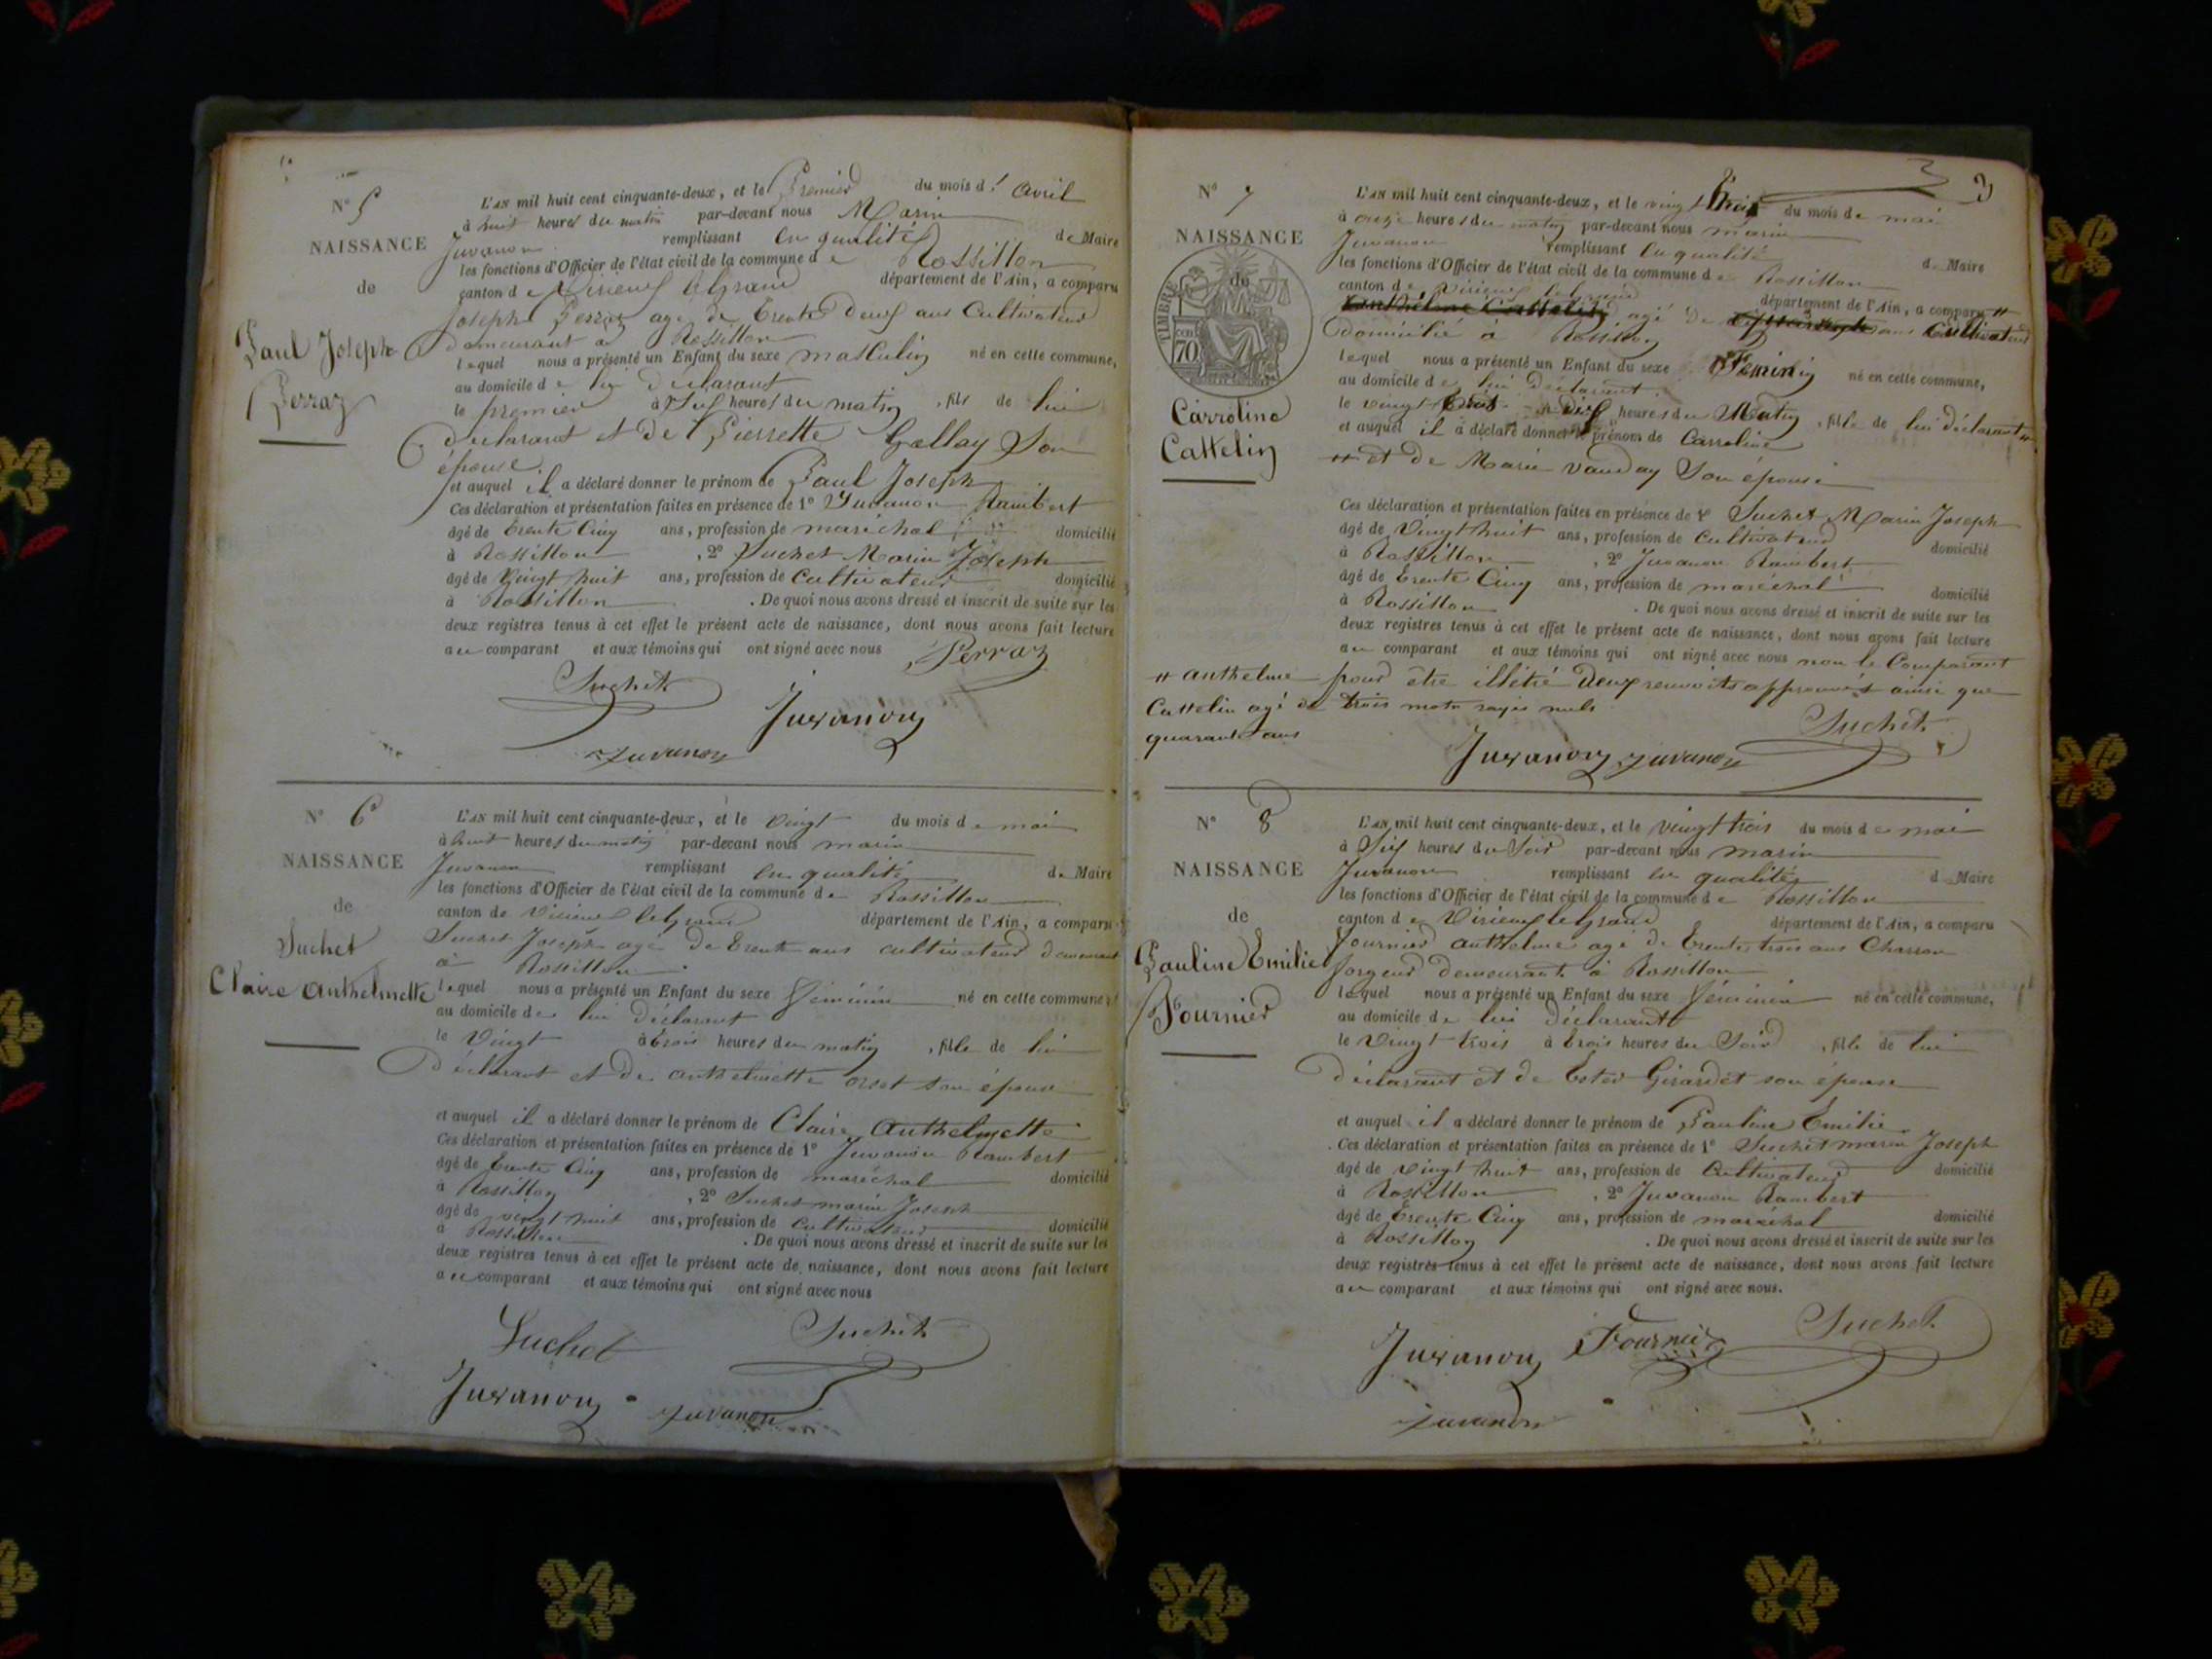 N° 5
NAISSANCE
de
Paul Joseph
Perraz
L'AN mil huit cent cinquante-deux, et le Premier du mois d'avril
à huit heures du matin par-devant nous Marin
Juvanon remplissant en qualité de Maire
les fonctions d'Officier de l'état civil de la commune de Rossillon
canton de Virieux le grand département de l'Ain, a comparu
Joseph Perraz agé de trente deux ans Cultivateur
demeurant à Rossillon
lequel nous a présenté un Enfant du sexe masculin né en cette commune,
au domicile de lui déclarant
le premier à heures du matin, fils de lui
déclarant et de Pierrette Gallay Son
épouse
et auquel il a déclaré donner le prénom de Paul Joseph
Ces déclaration et présentation faites en présence de 1° Juvanon Rambert
âgé de trente Cinq ans, profession de maréchal domicilié
à Rossillon, 2° Suchet Marin Joseph
âgé de Vingt huit ans, profession de Cultivateur domicilié
à Rossillon. De quoi nous avons dressé et inscrit de suite sur les
deux registres tenus à cet effet le présent acte de naissance, dont nous avons fait lecture
au comparant et aux témoins qui ont signé avec nous Perraz
Suchet
Juvanon
Juvanon
N° 6
NAISSANCE
de
Suchet
Claire Anthelmette
L'AN mil huit cent cinquante-deux, et le vingt du mois de mai
à huit heures du matin par-devant nous marin
Juvanon remplissant en qualité de Maire
les fonctions d'Officier de l'état civil de la commune de Rossillon
canton de Virieux le grand département de l'Ain, a comparu
Suchet Joseph agé de trente ans cultivateur demeurant
à Rossillon
lequel nous a présenté un Enfant du sexe féminin né en cette commune,
au domicile de lui déclarant
le Vingt à trois heures du matin, fille de lui
déclarant et de anthelmette orset son épouse
et auquel il a déclaré donner le prénom de Claire Anthelmette
Ces déclaration et présentation faites en présence de 1° Juvanon Rambert
âgé de trente Cinq ans, profession de maréchal domicilié
à Rossillon, 2° Suchet marin Joseph
âgé de vingt huit ans, profession de cultivateur domicilié
à Rossillon. De quoi nous avons dressé et inscrit de suite sur les
deux registres tenus à cet effet le présent acte de naissance, dont nous avons fait lecture
au comparant et aux témoins qui ont signé avec nous
Suchet
Suchet
Juvanon
Juvanon
3
N° 7
NAISSANCE
de
TIMBRE
70
Carroline
Cattelin
L'AN mil huit cent cinquante-deux, et le vingt trois du mois de mai
à onze heures du matin par-devant nous marin
Juvanon remplissant en qualité de Maire
les fonctions d'Officier de l'état civil de la commune de Rossillon
canton de Virieux le grand département de l'Ain, a comparu #
Anthelme Cattelin agé de ans Cultivateur
domicilié à Rossillon
lequel nous a présenté un Enfant du sexe Féminin né en cette commune,
au domicile de lui déclarant
le vingt trois à dix heures du Matin, fille de lui déclarant #
et auquel il a déclaré donner le prénom de Carroline
# et de Marie vauday Son épouse
Ces déclaration et présentation faites en présence de 1° Suchet Marin Joseph
âgé de Vingt huit ans, profession de Cultivateur domicilié
à Rossillon, 2° Juvanon Rambert
âgé de trente Cinq ans, profession de maréchal domicilié
à Rossillon. De quoi nous avons dressé et inscrit de suite sur les
deux registres tenus à cet effet le présent acte de naissance, dont nous avons fait lecture
au comparant et aux témoins qui ont signé avec nous non le Comparant
pour etre illétré Deux renvoits approuvés ainsi que
trois mots rayés nuls
# anthelme
Cattelin agé de
quarante ans
Suchet
Juvanon Juvanon
N° 8
NAISSANCE
de
Pauline Emilie
Fournier
L'AN mil huit cent cinquante-deux, et le vingt trois du mois de mai
à Six heures du Soir par-devant nous marin
Juvanon remplissant en qualité de Maire
les fonctions d'Officier de l'état civil de la commune de Rossillon
canton de Virieux le grand département de l'Ain, a comparu
Fournier anthelme agé de trente trois ans Charron
forgeur demeurant à Rossillon
lequel nous a présenté un Enfant du sexe féminin né en cette commune,
au domicile de lui déclarant
le Vingt trois à trois heures du Soir, fille de lui
déclarant et de Ester Girardet son épouse
et auquel il a déclaré donner le prénom de Pauline Emilie
Ces déclaration et présentation faites en présence de 1° Suchet marin Joseph
âgé de vingt huit ans, profession de Cultivateur domicilié
à Rossillon, 2° Juvanon Rambert
âgé de trente Cinq ans, profession de maréchal domicilié
à Rossillon. De quoi nous avons dressé et inscrit de suite sur les
deux registres tenus à cet effet le présent acte de naissance, dont nous avons fait lecture
au comparant et aux témoins qui ont signé avec nous.
Juvanon Fournier Suchet
Juvanon